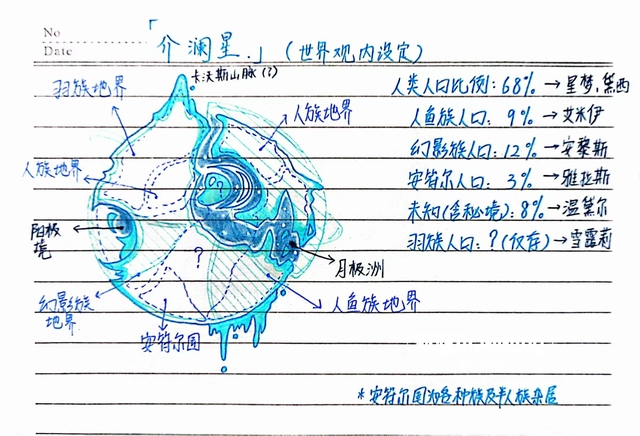 No
Date
「介澜星.」(世界观内设定)
卡沃斯山脉(?)
羽族地界
人族地界
人族地界
阳极境
幻影族地界
安符尔国
人鱼族地界
月极洲
?
?
人类人口比例:68%→星梦,黛西
人鱼族人口:9%→艾米伊
幻影族人口:12%→安黎斯
安符尔人口:3%→雅拉斯
未知(含秘境):8%→温黛尔
羽族人口:?(仅存)→雪露莉
*安符尔国为各种族及半人族杂居